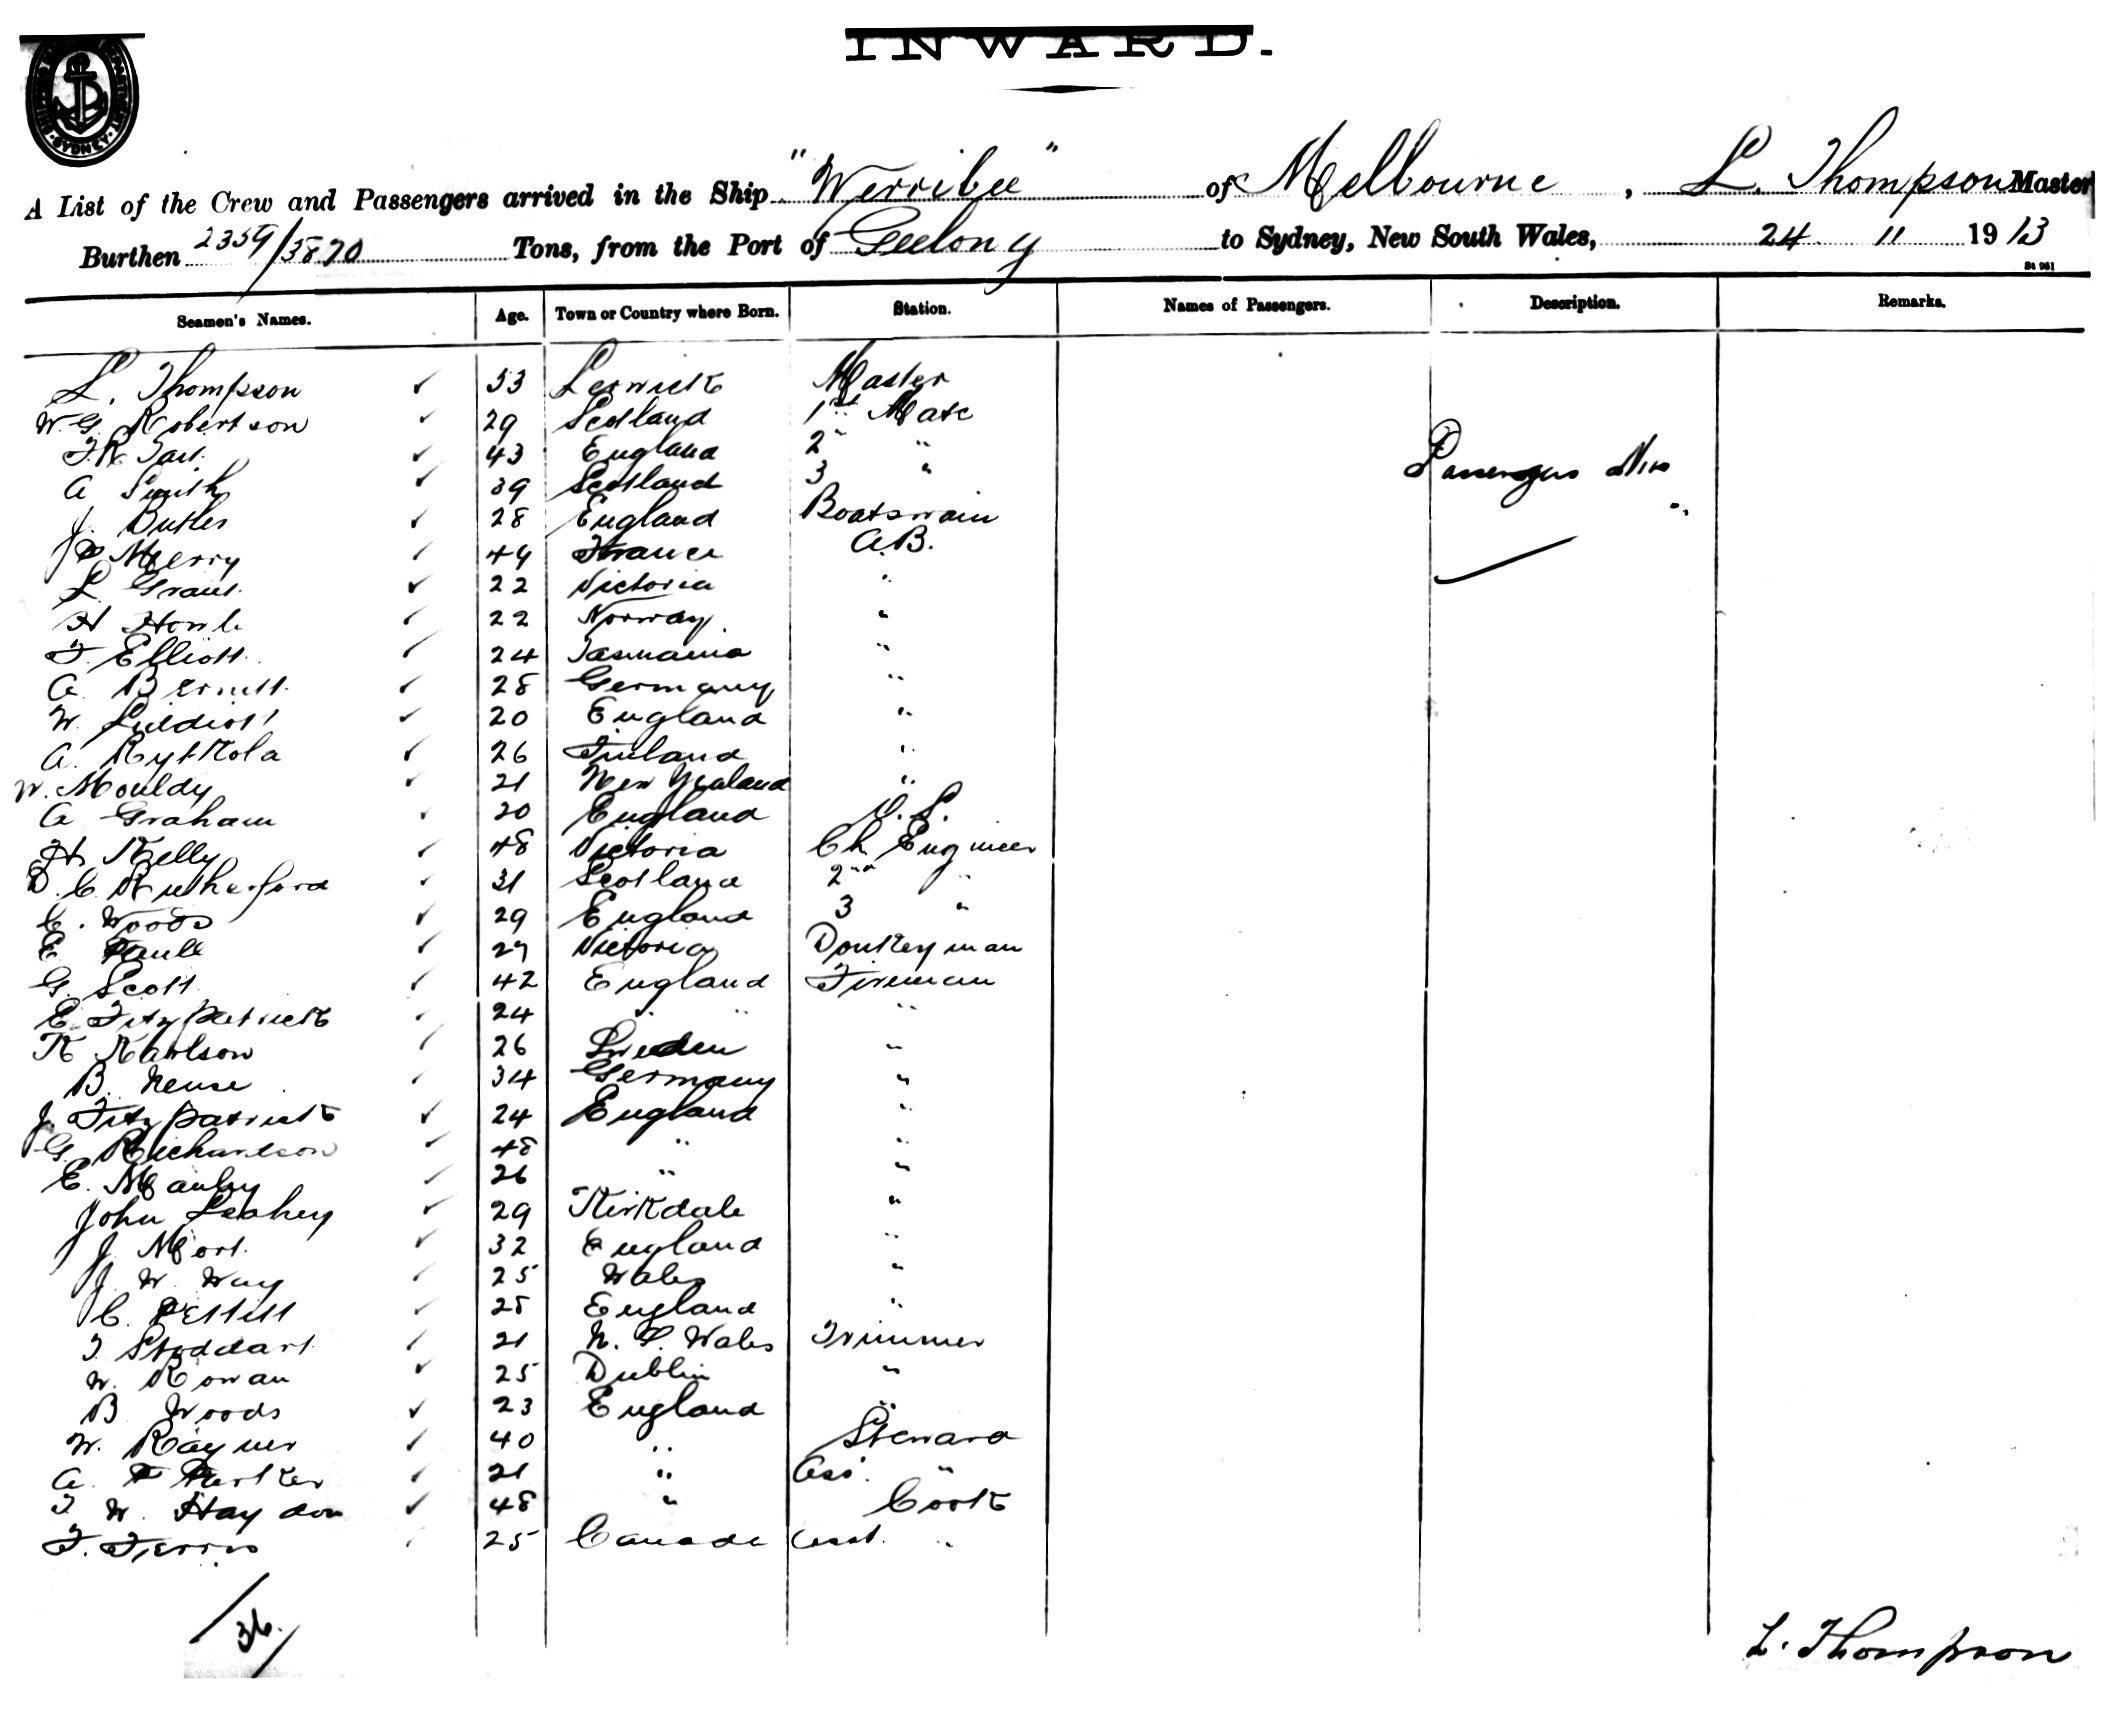 INWARD.
SYDNEY
A List of the Crew and Passengers arrived in the Ship "Werribee" of Melbourne, L. Thompson Master
Burthen 2359/3870 Tons, from the Port of Geelong to Sydney, New South Wales, 24 11 1913
St 961
Seamen's Names. Age. Town or Country where Born. Station. Names of Passengers. Description. Remarks.
L. Thompson ✓ 53 Lerwick Master
W. G. Robertson ✓ 29 Scotland 1st Mate
✓ 43 England 2 "
A Smith ✓ 39 Scotland 3 "
Passengers Nil
J. Butler ✓ 28 England Boatswain
P Merry ✓ 49 France A.B.
L Grant ✓ 22 Victoria "
H ✓ 22 Norway "
F. Elliott ✓ 24 Tasmania "
A. ✓ 28 Germany "
W. ✓ 20 England "
A. Rytkola ✓ 26 Finland "
W. Mouldy ✓ 21 New Zealand "
A Graham ✓ 20 England O. S.
H Kelly ✓ 48 Victoria Ch Engineer
D. C. Rutherford ✓ 31 Scotland 2nd "
C. Woods ✓ 29 England 3 "
E ✓ 29 Victoria Donkeyman
G. Scott ✓ 42 England Fireman
E. Fitzpatrick ✓ 24 " "
K Karlson ✓ 26 Sweden "
B. Neuse ✓ 34 Germany "
J. Fitzpatrick ✓ 24 England "
G. Richardson ✓ 48 " "
E. Manley ✓ 26 " "
John Leahey ✓ 29 Kirkdale "
J Mort ✓ 32 England "
J. W. Way ✓ 25 Wales "
C. Pettitt ✓ 28 England "
T. Stoddart ✓ 21 N. S. Wales Trimmer
W. Rowan ✓ 25 Dublin "
B Woods ✓ 23 England "
W. Rayner ✓ 40 " Steward
A. F Parker ✓ 21 " Ass. "
T W. Haydon ✓ 48 " Cook
F. Ferris ✓ 25 Canada Asst. "
36.
L. Thompson